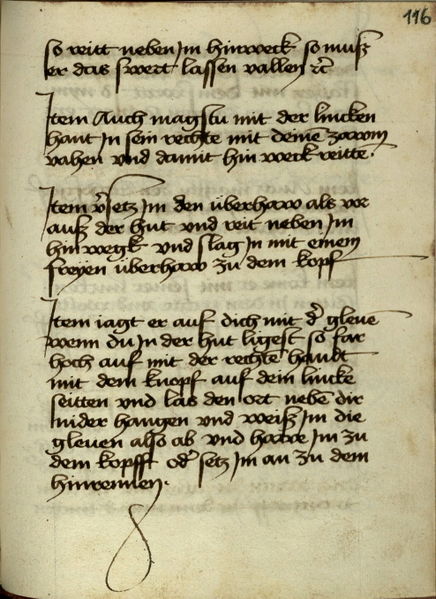 116
so reitt neben Im hinweck so muß
er das swert lassen vallen ꝛc
Item Auch magstu mit der lincken
hant In sein rechte mit deme zawm
vahen vnd damit hin weck reitte
Item v̓setz Im den überhaw als vor
auß der hut vnd reit neben Im
hin wegk vnd slag In mit einem
freyen überhaw zu dem kopf
Item iagt er auf dich mit d̓ gleue
wenn du In der hut ligest so far
hoch auf mit der rechte handt
mit dem knopf auf dein lincke
seitten vnd las den ort nebē dir
nider hangen vnd weiß Im die
gleuen also ab vnd hawe Im zu
dem kopff od̓ setz Im an zu dem
hinrennen.